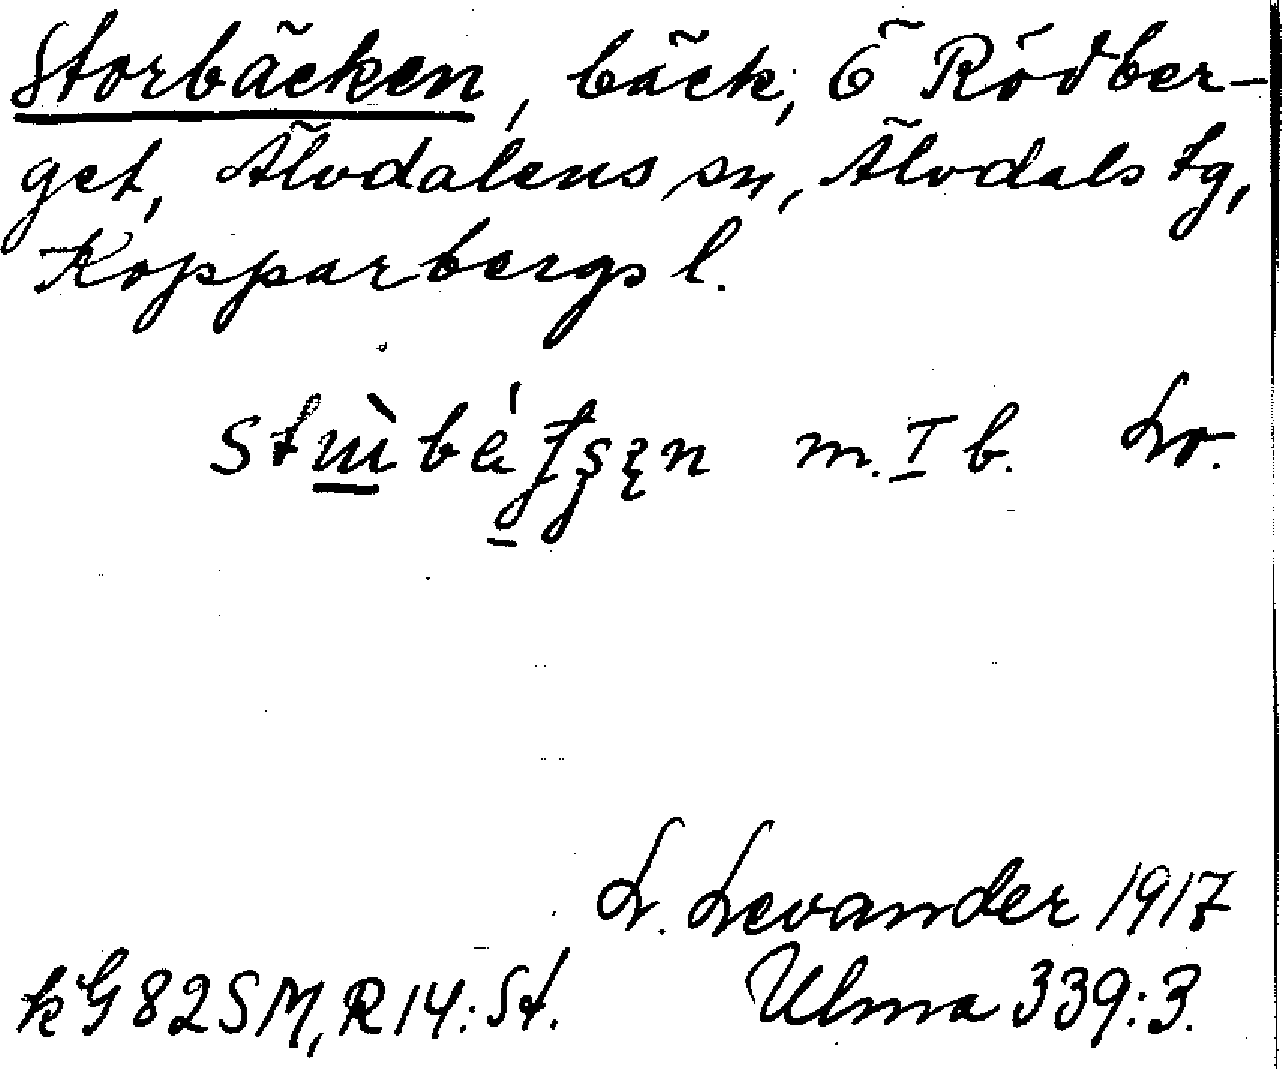 Storbäcken, bäck, Ö Rödber-
get, Älvdalens sn, Älvdals tg,
Kopparbergs l.
m. I b. Lr.
L. Levander 1917
kG 82 SM, R 14: St. Ulma 339:3.